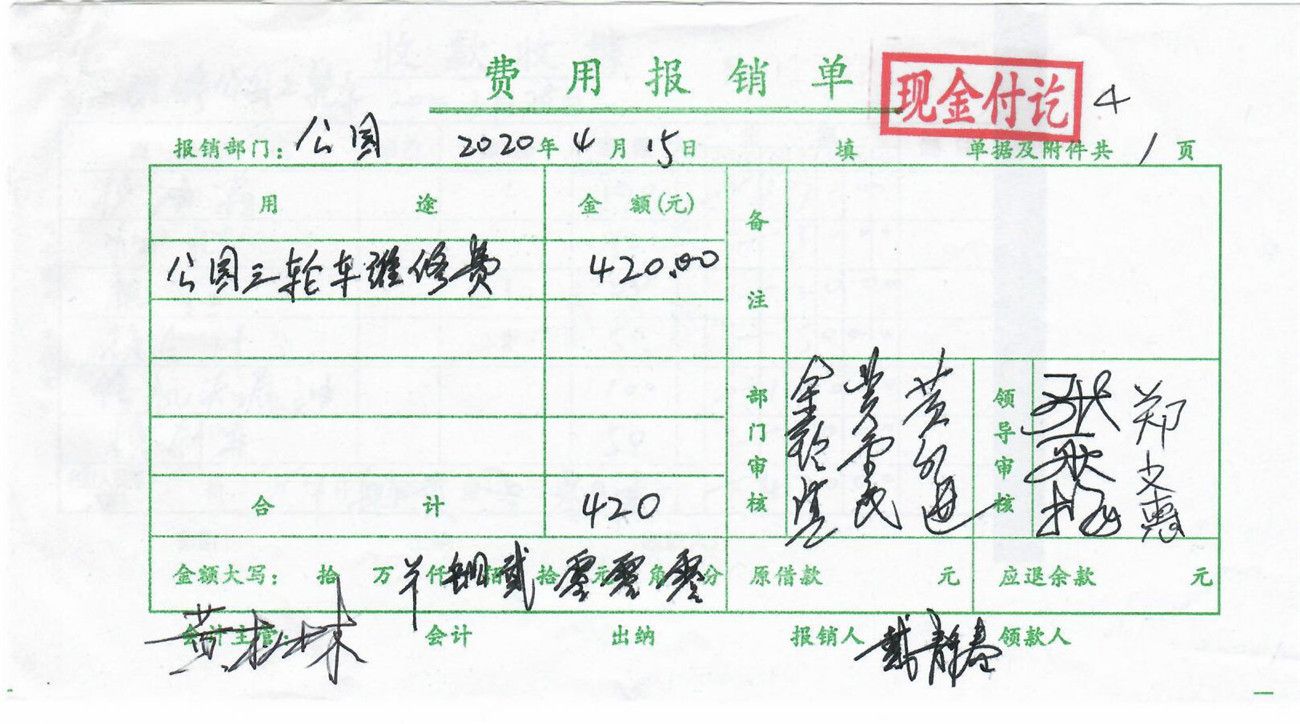 费用报销单 现金付讫 4
报销部门: 公园 2020年4月15日 填 单据及附件共 1 页
用途 金额(元) 备注
公园三轮车维修费 420.00
部门审核 领导审核 郑文惠
合计 420
金额大写: 拾 万 羊 仟 肆 佰 贰 拾 零 元 零 角 零 分 原借款 元 应退余款 元
会计主管: 黄松林 会计 出纳 报销人 戴静春 领款人